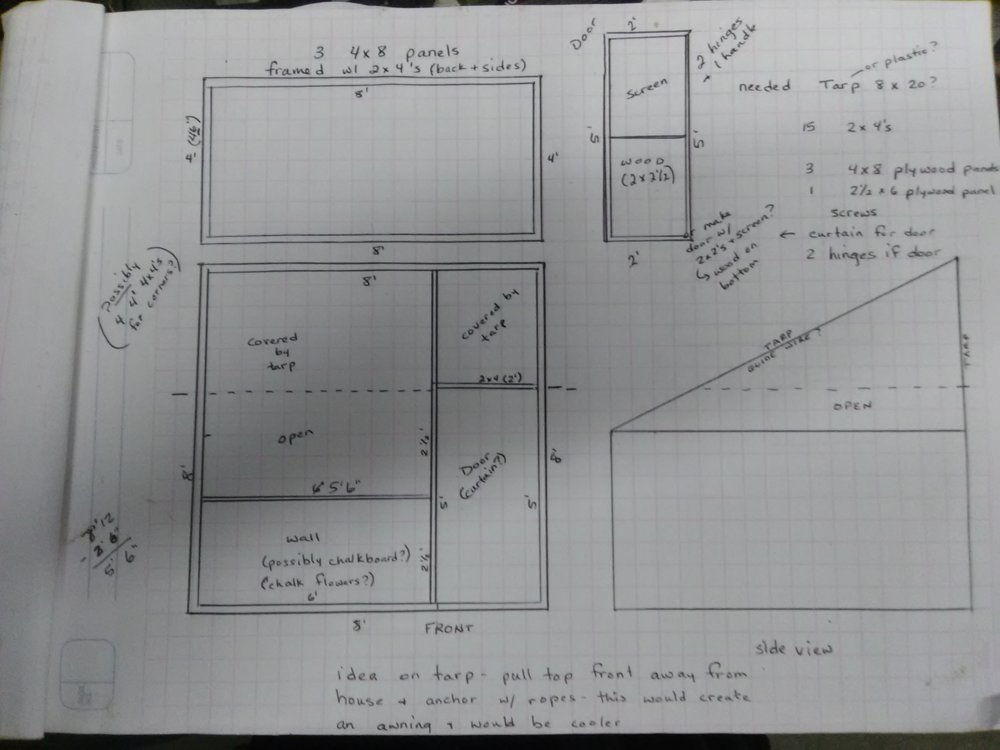 3 4x8 panels
framed w/ 2x4's (back + sides)
8'
4' (46")
4'
8'
Door
2'
2 hinges
+ 1 handle
Screen
5'
5'
WOOD
(2x2 1/2)
2'
or make
door w/
2x2's + screen?
↳ wood on
bottom
or plastic?
needed Tarp 8 x 20?
15 2x4's
3 4x8 plywood panels
1 2 1/2 x 6 plywood panel
screws
← curtain for door
2 hinges if door
(Possibly
4 4' 4x4's
for corners?)
8'
covered
by
tarp
covered by
tarp
2x4 (2')
open
8'
2 1/2'
Door
(curtain?)
8'
6' 5'6"
5'
5'
wall
(possibly chalkboard?)
(chalk flowers?)
2 1/2'
6'
8'
FRONT
5' 6"
TARP
GUIDE WIRE?
TARP
OPEN
side view
idea on tarp - pull top front away from
house + anchor w/ ropes - this would create
an awning + would be cooler